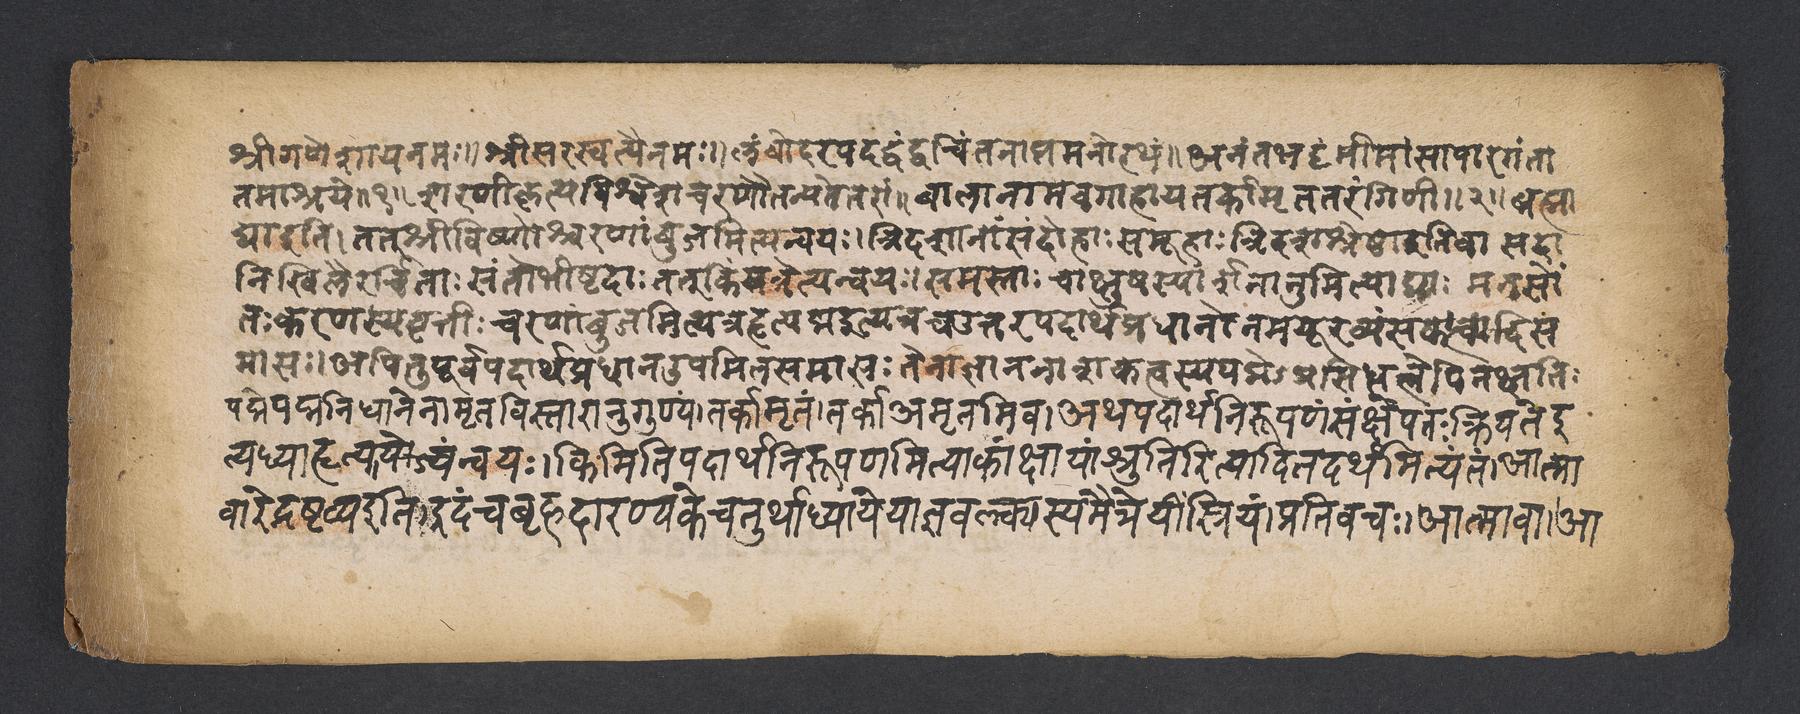 श्रीगणेशायनमः॥ श्रीसरस्वत्यैनमः॥ लंबोदरपदद्वंद्वचिंतनाप्तमनोरथं॥ अनंतभट्टंमीमांसापारगंता
तमाश्रये॥१॥ शरणीकृत्यविश्वेशचरणौतन्यतेतरां॥ बालानामवगाहायतर्कामृततरंगिणी॥२॥ ब्रह्मा
द्याइति। तत्श्रीविष्णोश्चरणांबुजमित्यन्वयः। त्रिदशानांसंदोहाः समूहाः त्रिदशाश्रेष्ठाइतिवा सदा
निखिलैरर्चिताः संतोभीष्टदाः तत्किंयत्रेत्यन्वयः। समस्ताः चाक्षुषस्पार्शनानुमित्याद्याः मनसों
तःकरणस्यवृत्तीः चरणांबुजमित्यत्रहृत्पद्मइत्यत्रचउत्तरपदार्थप्रधानोनमयूरव्यंसकादिस
मासः। अपितुपूर्वपदार्थप्रधानउपमितसमासः तेनाज्ञाननाशकत्वस्यपद्मेऽप्रसिद्धत्वेपिनक्षतिः
पद्मेपद्मनिधानेनामृतविस्तारानुगुण्यं। तर्कामृतं। तर्काअमृतमिव। अथपदार्थनिरूपणंसंक्षेपतःक्रियतेइ
त्यध्याहृत्य न्वयः। किमितिपदार्थनिरूपणमित्याकांक्षायांश्रुतिरित्यादितदर्थमित्यंतं। आत्मा
वारेद्रष्टव्यइति। इदंचबृहदारण्यकेचतुर्थाध्यायेयाज्ञवल्क्यस्यमैत्रेयींस्त्रियंप्रतिवचः। आत्मावा। आ